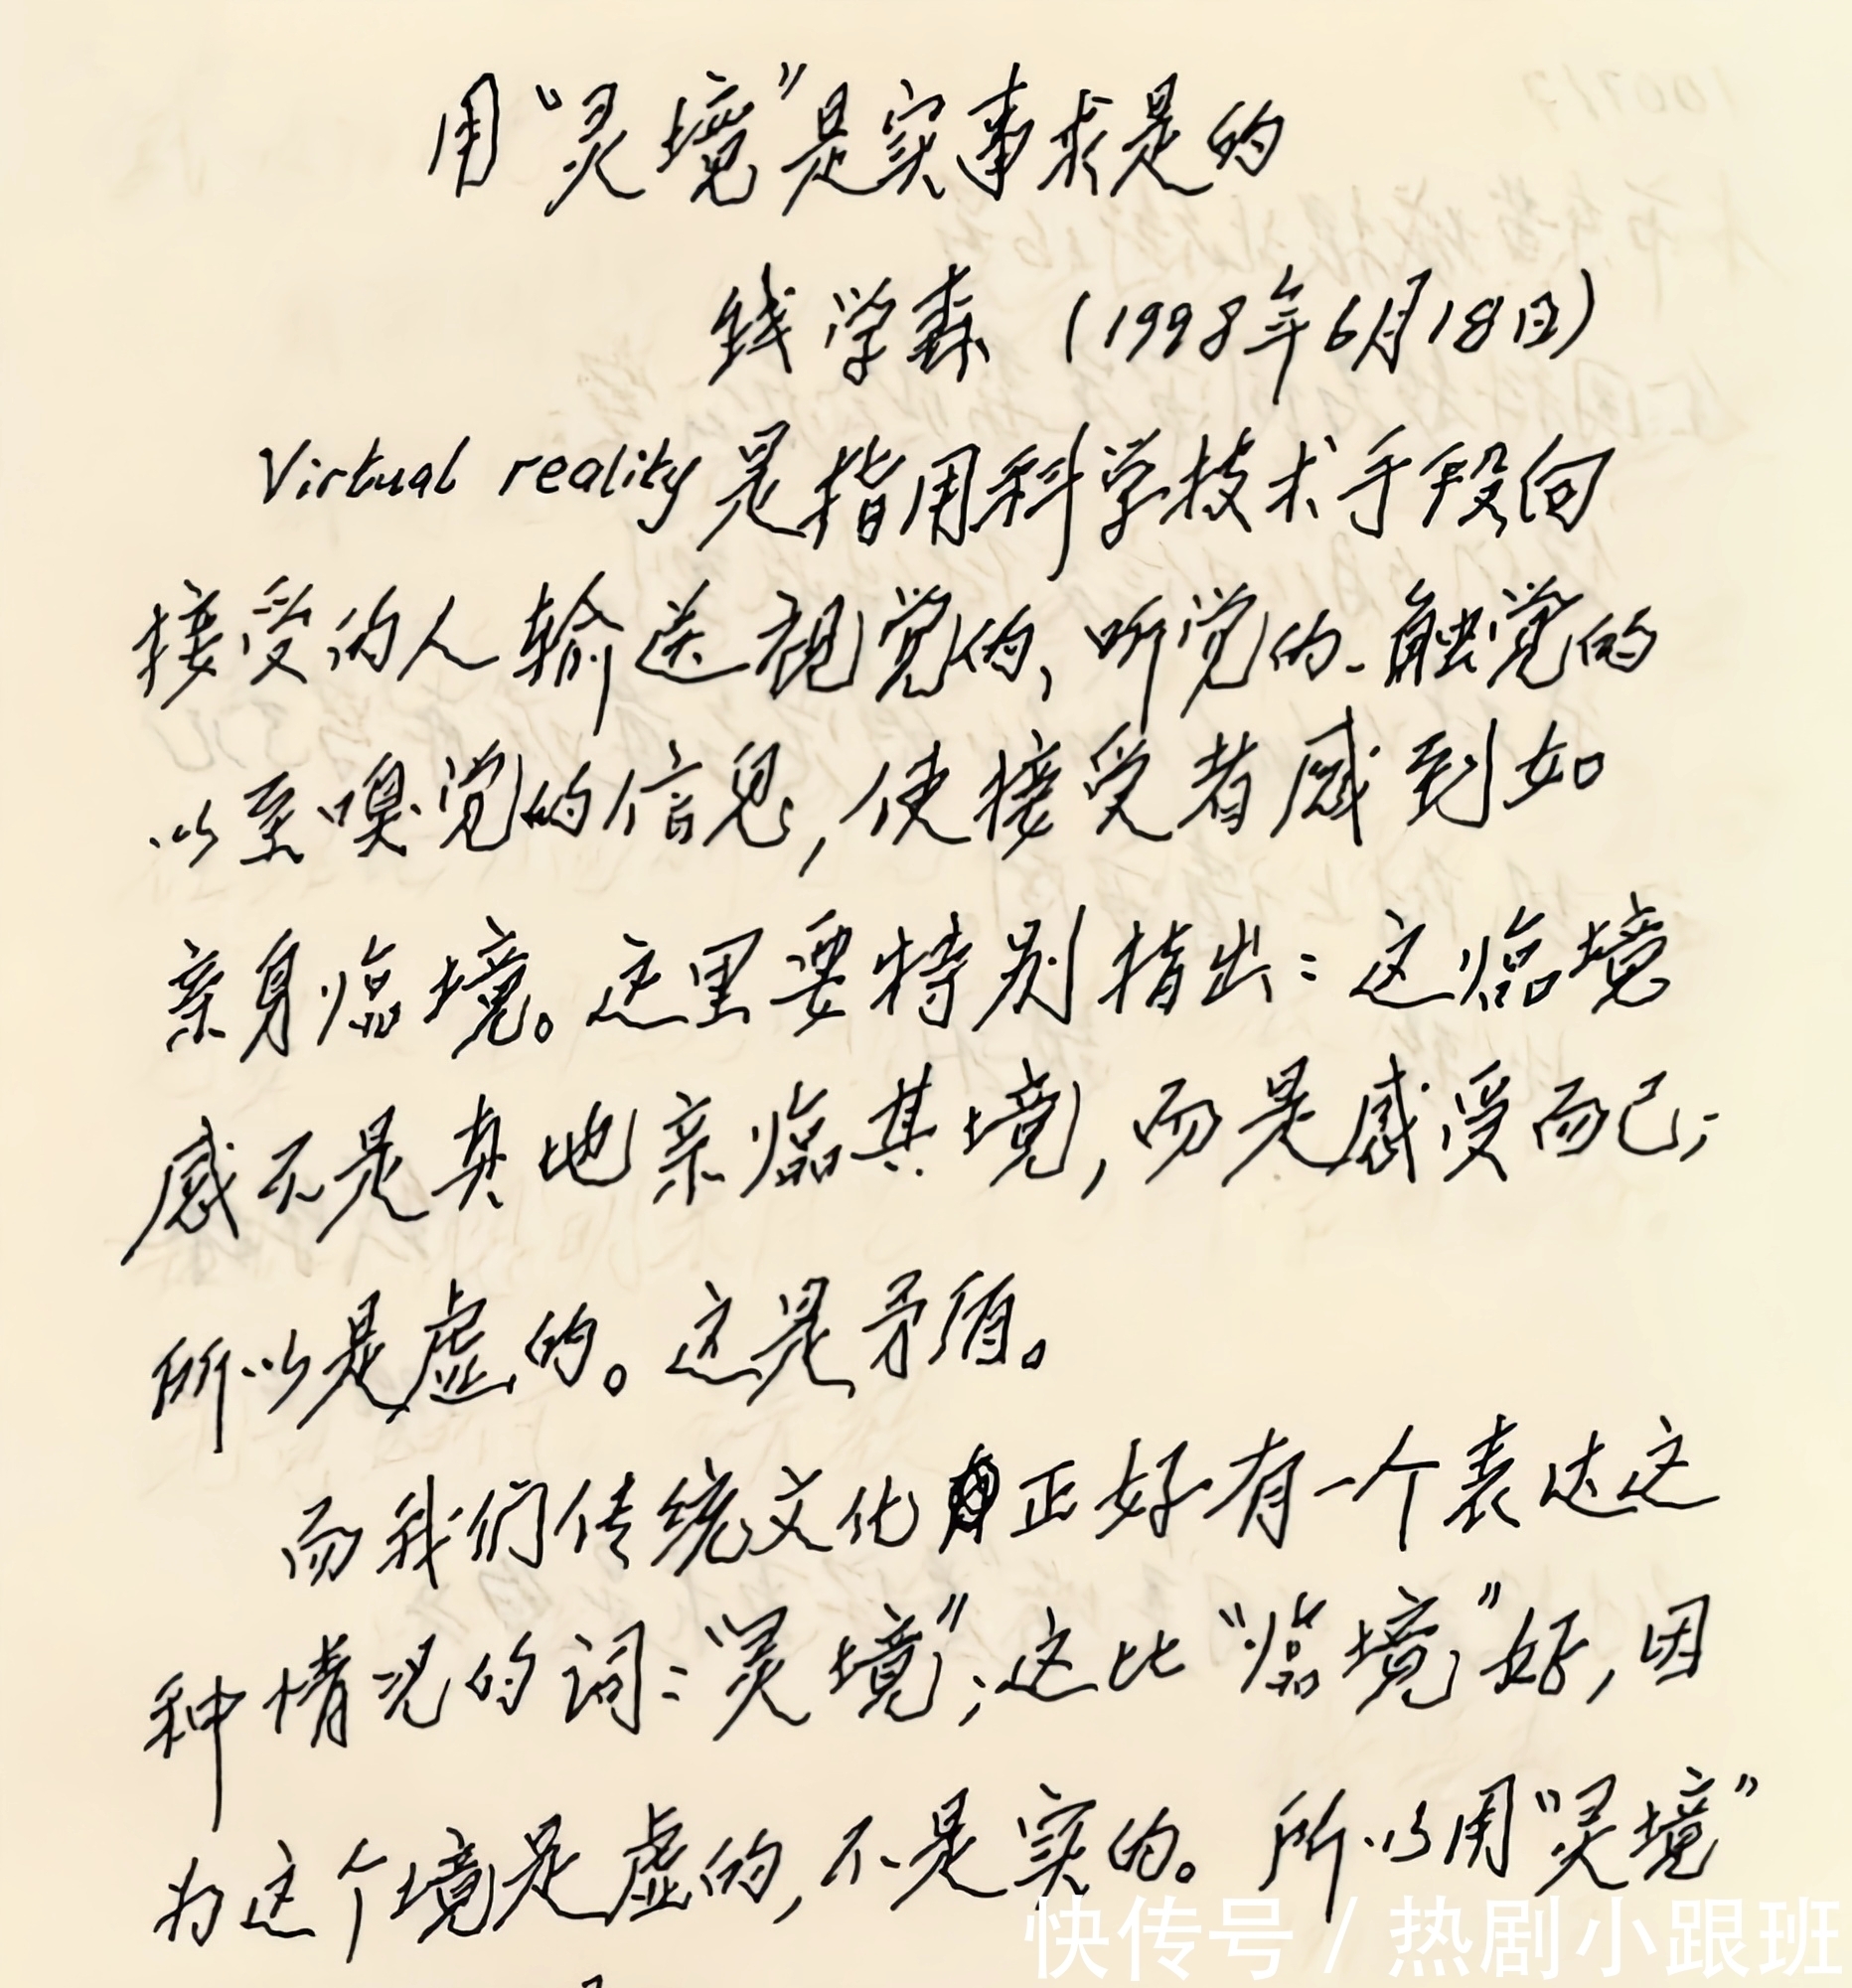 用“灵境”是实事求是的
钱学森（1998年6月18日）
Virtual reality是指用科学技术手段向
接受的人输送视觉的、听觉的、触觉的
以至嗅觉的信息，使接受者感到如
亲身临境。这里要特别指出：这临境
感不是真地亲临其境，而是感受而已；
所以是虚的。这是矛盾。
而我们传统文化正好有一个表达这
种情况的词：“灵境”；这比“临境”好，因
为这个境是虚的，不是实的。所以用“灵境”
快传号 / 热剧小跟班